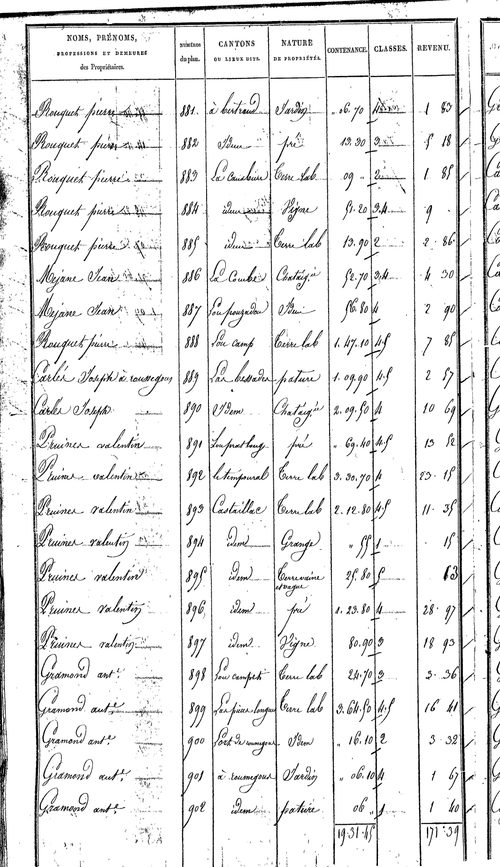 NOMS, PRÉNOMS, PROFESSIONS ET DEMEURES des Propriétaires. NUMÉROS du plan. CANTONS OU LIEUX DITS. NATURE DE PROPRIÉTÉS. CONTENANCE. CLASSES. REVENU.
Rouquet pierre 881 à bertrand Jardin " 16.70 1 83
Rouquet pierre 882 Idem pré 13.30 3 5 18
Rouquet pierre 883 Terre lab 09 " 2 1 85
Rouquet pierre 884 idem Vigne 51.20 3.4 9 "
Rouquet pierre 885 idem Terre lab 13.90 2 2 86
Mejane Jean 886 La Combe Chataig 52.70 3.4 4 30
Mejane Jean 887 Idem 56.80 4 2 90
Rouquet pierre 888 Lou camp Terre lab 1.47.10 4.5 7 85
Carles Joseph à roumegous 889 Las bessades pature 1.09.90 4.5 2 57
Carles Joseph 890 Idem Chataig 2.09.50 4 10 69
Pruines valentin 891 Lou prat long pré " 69.40 4.5 13 52
Pruines valentin 892 le temporal Terre lab 3.30.70 4 23 15
Pruines valentin 893 Castaillac Terre lab 2.12.80 4.5 11 35
Pruines valentin 894 idem Grange " 55 1 " 15
Pruines valentin 895 idem Terre vaine et vague 25.80 5 " 13
Pruines valentin 896 idem pré 1.23.80 4 28 97
Pruines valentin 897 idem Vigne 80.90 3 18 93
Gramond ant.e 898 Lou campet Terre lab 24.70 3 3 36
Gramond ant.e 899 Las pieces longues Terre lab 3.64.50 4.5 16 41
Gramond ant.e 900 Idem " 16.10 2 3 32
Gramond ant.e 901 à roumegous Jardin " 06.10 4 1 67
Gramond ant.e 902 idem pature 06 " 1 1 40
19.31.45 171.39